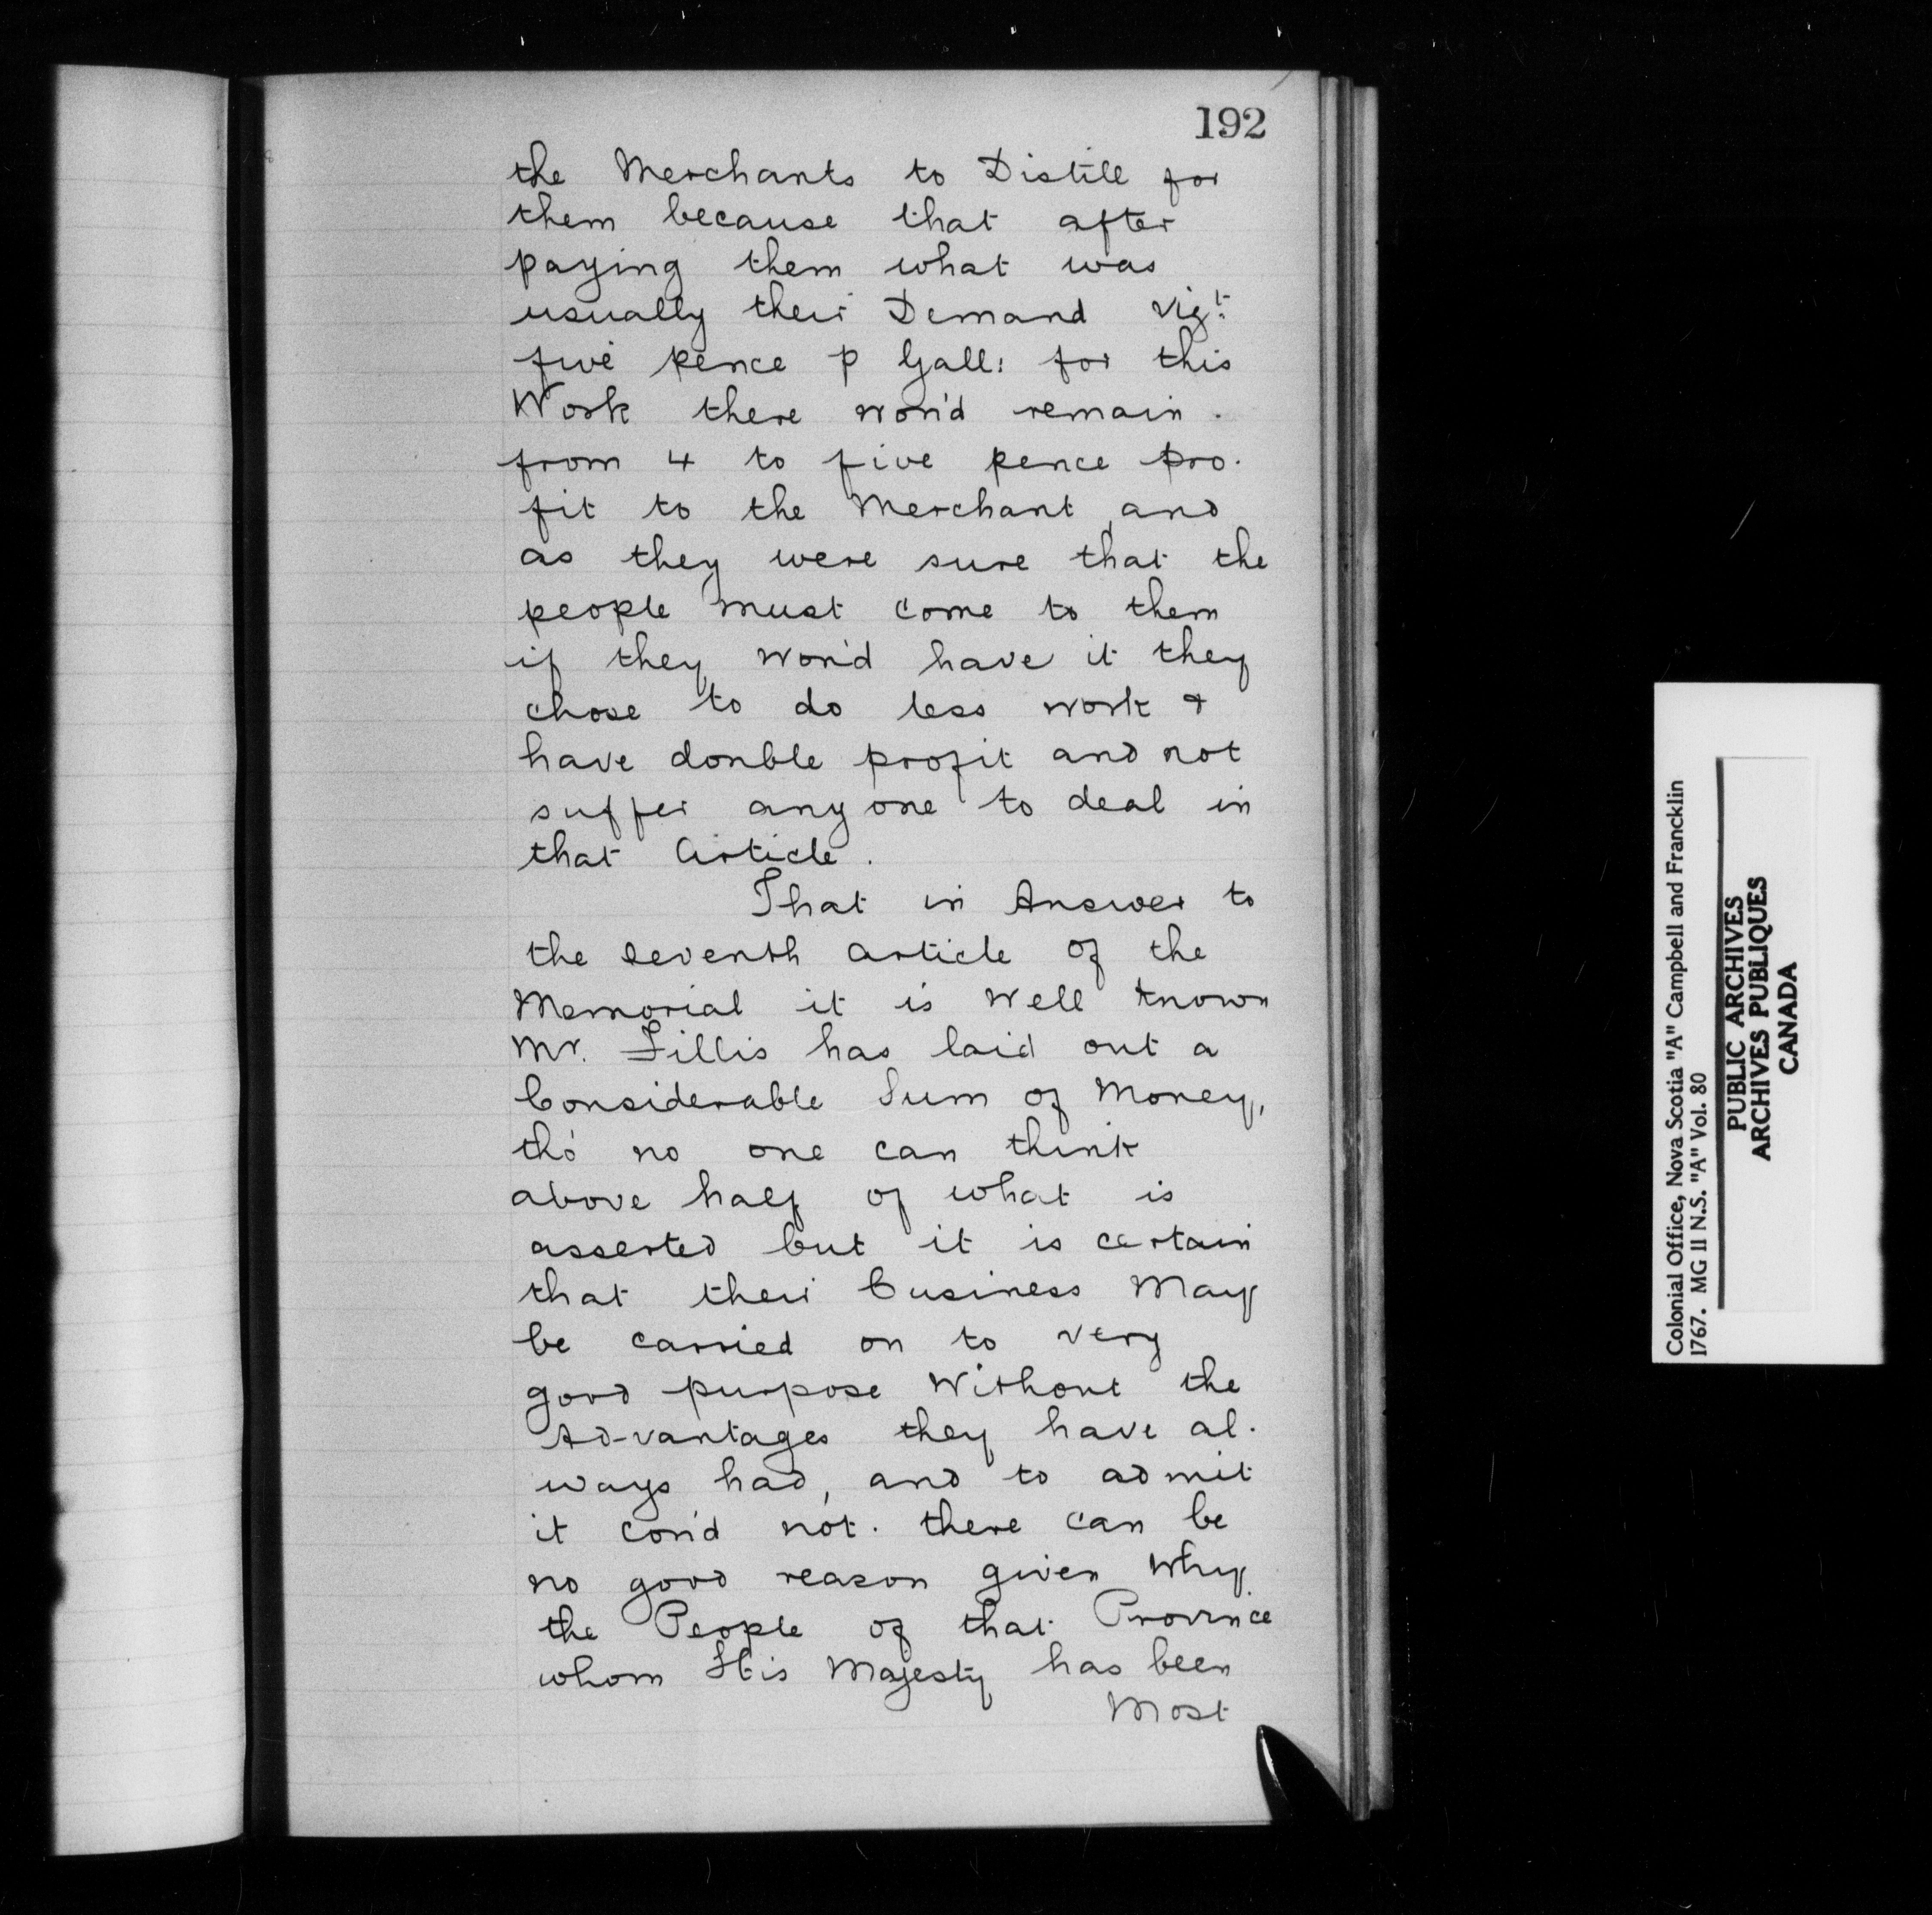 192
the Merchants to Distill for
them because that after
paying them what was
usually their Demand vizt:
five pence p Gall: for this
Work there wou'd remain.
from 4 to five pence pro-
fit to the Merchant, and
as they were sure that the
people must come to them
if they wou'd have it they
chose to do less work &
have double profit and not
suffer any one to deal in
that Article.
That in Answer to
the seventh Article of the
Memorial it is Well known
Mr. Fillis has laid out a
Considerable Sum of Money,
tho' no one can think
above half of what is
asserted but it is certain
that their business May
be carried on to very
good purpose Without the
Advantages they have al-
ways had, and to admit
it cou'd not. there can be
no good reason given Why
the People of that Province
whom His Majesty has been
Most
Colonial Office, Nova Scotia "A" Campbell and Francklin
1767. MG 11 N.S. "A" Vol. 80
PUBLIC ARCHIVES
ARCHIVES PUBLIQUES
CANADA